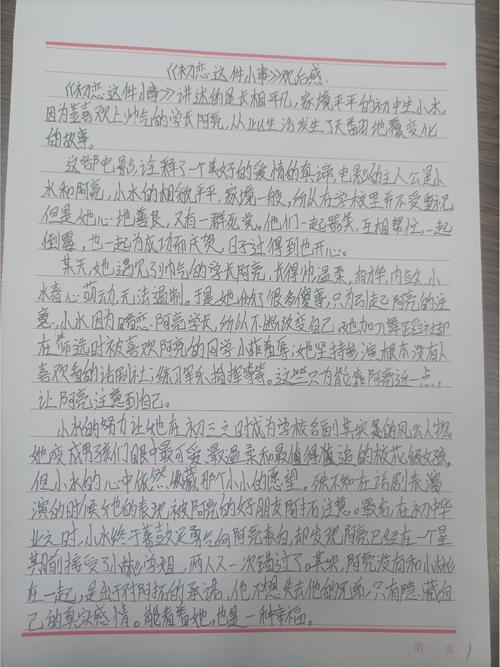 《初恋这件小事》观后感.
《初恋这件小事》讲述的是长相平凡,家境平平的初中生小水
因为喜欢上帅气的学长阿亮,从此生活发生了天翻地覆变化
的故事。
这部电影诠释了一个美好的爱情的真谛,电影的主人公是小
水和阿亮,小水的相貌平平,家境一般,所以在学校里并不受重视
但是她心地善良,又有一群死党。他们一起嬉笑,互相帮忙,一起
倒霉,也一起为成功而庆贺,日子过得到也开心。
某天,她遇见了帅气的学长阿亮,长得帅温柔,
小水春心萌动,无法遏制。于是她做了很多傻事,只为引起阿亮的注
意,小水因为暗恋阿亮学长,所以不断改变自己,她加入舞蹈社却
在筛选时被喜欢阿亮的同学小菲羞辱;她坚持参演根本没有人
喜欢看的话剧社;练习军乐指挥等等。这些只为能靠阿亮近一点,
让阿亮注意到自己。
小水的努力让她在初三之时成为学校名副其实的风云人物。
她变成男孩们眼中最可爱最温柔和最值得追的校花级女孩,
但小水的心中依然收藏那个小小的愿望。殊不知在话剧表演
演的时候她的表现被阿亮的好朋友阿拓注意。最后,在初中毕
业之时,小水终于鼓足勇气向阿亮表白,却发现阿亮已经在一个星
期前接受了小林学姐,两人又一次错过了。其实,阿亮没有和小水
在一起,是出于对阿拓的承诺,他不想失去他的兄弟,只有隐藏自
己的真实感情。能看着她,也是一种幸福。
第 页 1